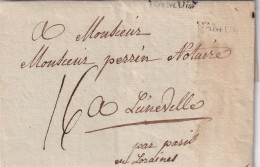 A Monsieur
Monsieur perrin Notaire
16
A Luneville
par paris
en Loraines